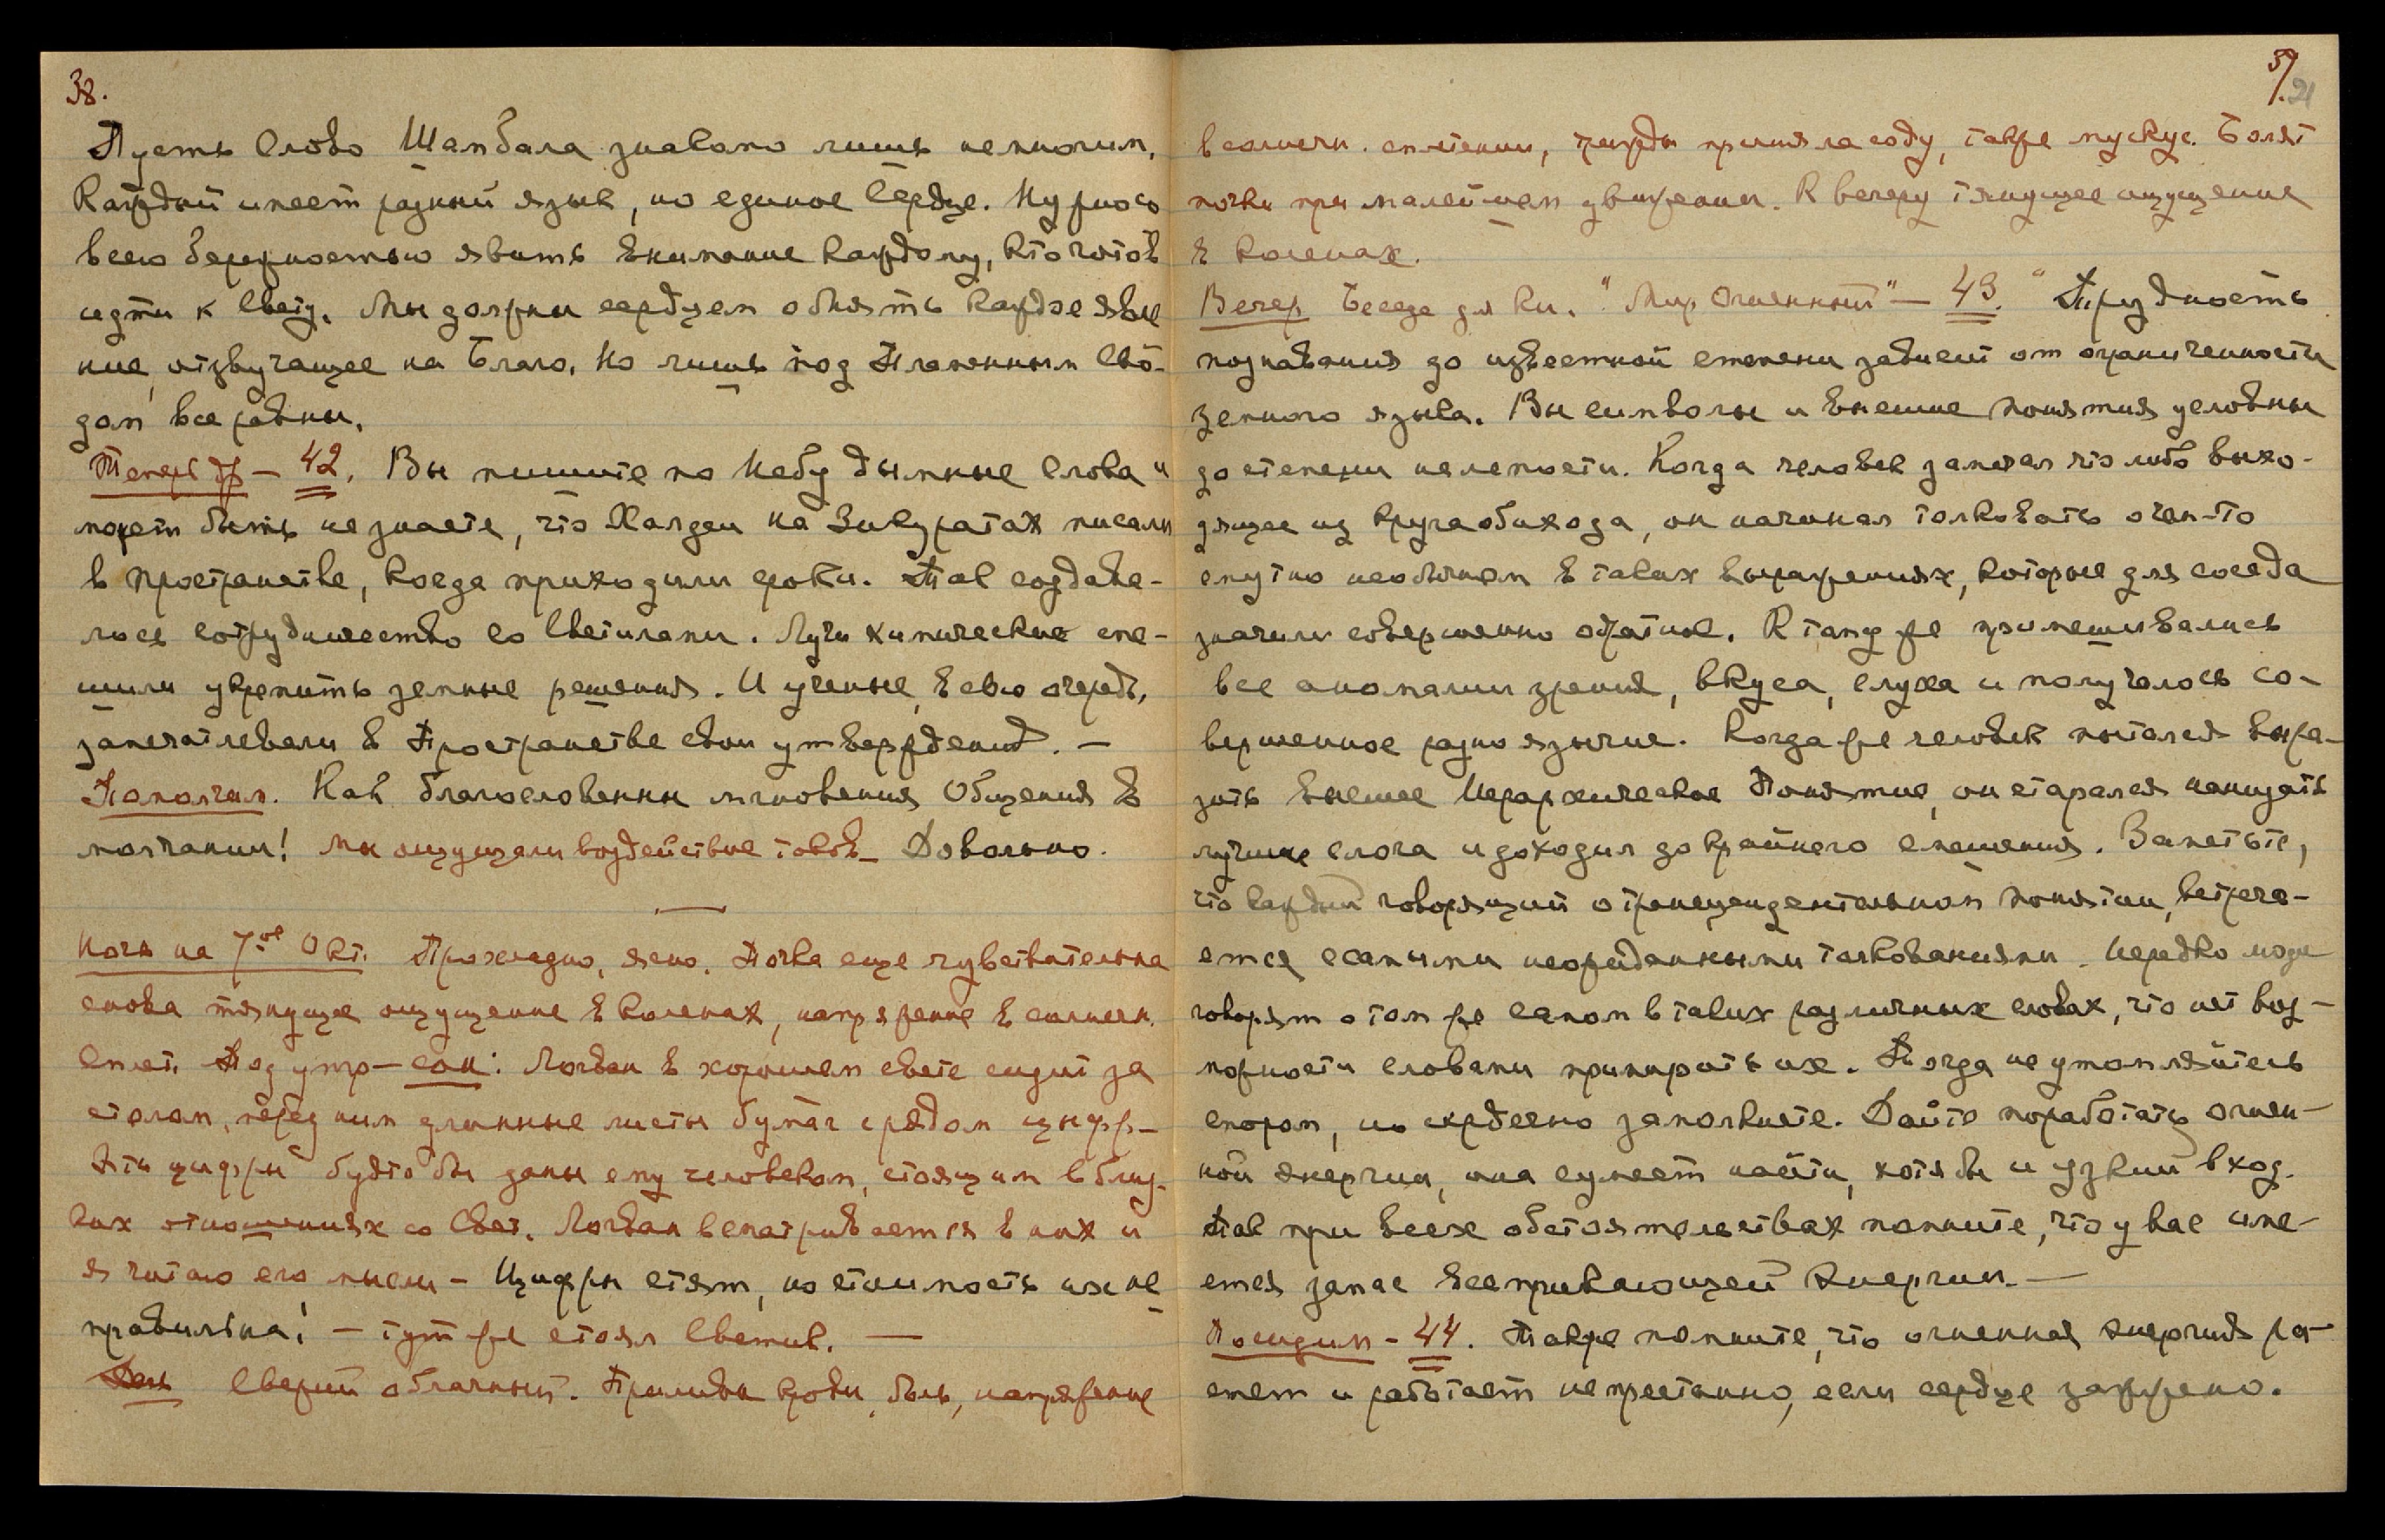 38.
Пусть слово Шамбала знакомо лишь немногим.
Каждый имеет разный язык, но единое Сердце. Нужно со
всею бережностью явить внимание каждому, кто готов
идти к Свету. Мы должны сердцем обнять каждое явле
ние, отзвучащее на Благо. Но лишь под Пламенным Сво-
дом все равны.
Теперь др – 42. Вы пишите по Небу дымные слова и
может быть не знаете, что Халдеи на Зикуратах писали
в пространстве, когда приходили сроки. Так создава-
лось сотрудничество со Светилами. Лучи химические спе-
шили укрепить земные решения. И ученые, в свою очередь,
запечатлевали в Пространстве свои утверждения. –
Помолчим. Как благословенны мгновения Общения в
молчании! Мы ощущали воздействие токов – Довольно.
Ночь на 7-ое Окт. Прохладно, ясно. Почка еще чувствительна
снова тянущее ощущение в коленах, напряжение в солнечн.
сплет. Под утро – сон: Логван в хорошем свете сидит за
столом, перед ним длинные листы бумаг с рядом цифр –
Эти цифры будто бы даны ему человеком, стоящим в близ-
ких отношениях со Свет. Логван всматривается в них и
я читаю его мысли – Цифры стоят, но стоимость их не
правильна! – тут же стоял Светик. –
День Свежий облачный. Приливы крови, боль, напряжение
39. 21
в солнечн. сплетении, трижды приняла соду, также мускус. Болят
почки при малейшем движении. К вечеру тянущее ощущение
в коленах.
Вечер Беседа для Кн. "Мир Огненный" – 43. "Трудность
познавания до известной степени зависит от ограниченности
земного языка. Вы символы и высшие понятия условны
до степени нелепости. Когда человек замечал что либо выхо-
дящее из круга обихода, он начинал толковать о чем-то
смутно необычном в таких выражениях, которые для соседа
значили совершенно обратное. К тому же примешивались
все аномалии зрения, вкуса, слуха и получалось со-
вершенное разноязычие. Когда же человек пытался выра-
зить высшее Иерархическое Понятие, он старался нанизать
лучшие слога и доходил до крайнего смешения. Заметьте,
что каждый говорящий о трансцендентальном понятии, встреча-
ется с самыми неожиданными толкованиями. Нередко люди
говорят о том же самом в таких различных словах, что нет воз-
можности словами примирить их. Тогда не утомляйтесь
спором, но сердечно замолкните. Дайте поработать огнен-
ной энергии, она сумеет найти, хотя бы и узкий вход.
Так при всех обстоятельствах помните, что у вас име-
ется запас всепроникающей энергии. –
Посидим – 44. Также помните, что огненная энергия ра-
стет и работает непрестанно, если сердце зажжено.